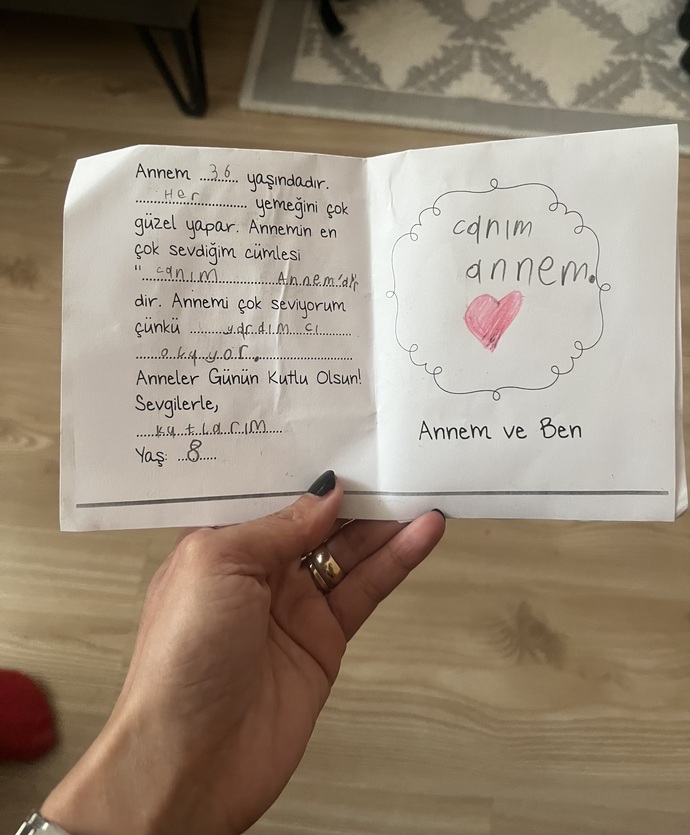 Annem ..36.. yaşındadır.
Her yemeğini çok
güzel yapar. Annemin en
çok sevdiğim cümlesi
"canım Annem'dk
dir. Annemi çok seviyorum
çünkü yardım cı
okuyor.
Anneler Günün Kutlu Olsun!
Sevgilerle,
kutlarım
Yaş: 8
canım
annem.
Annem ve Ben